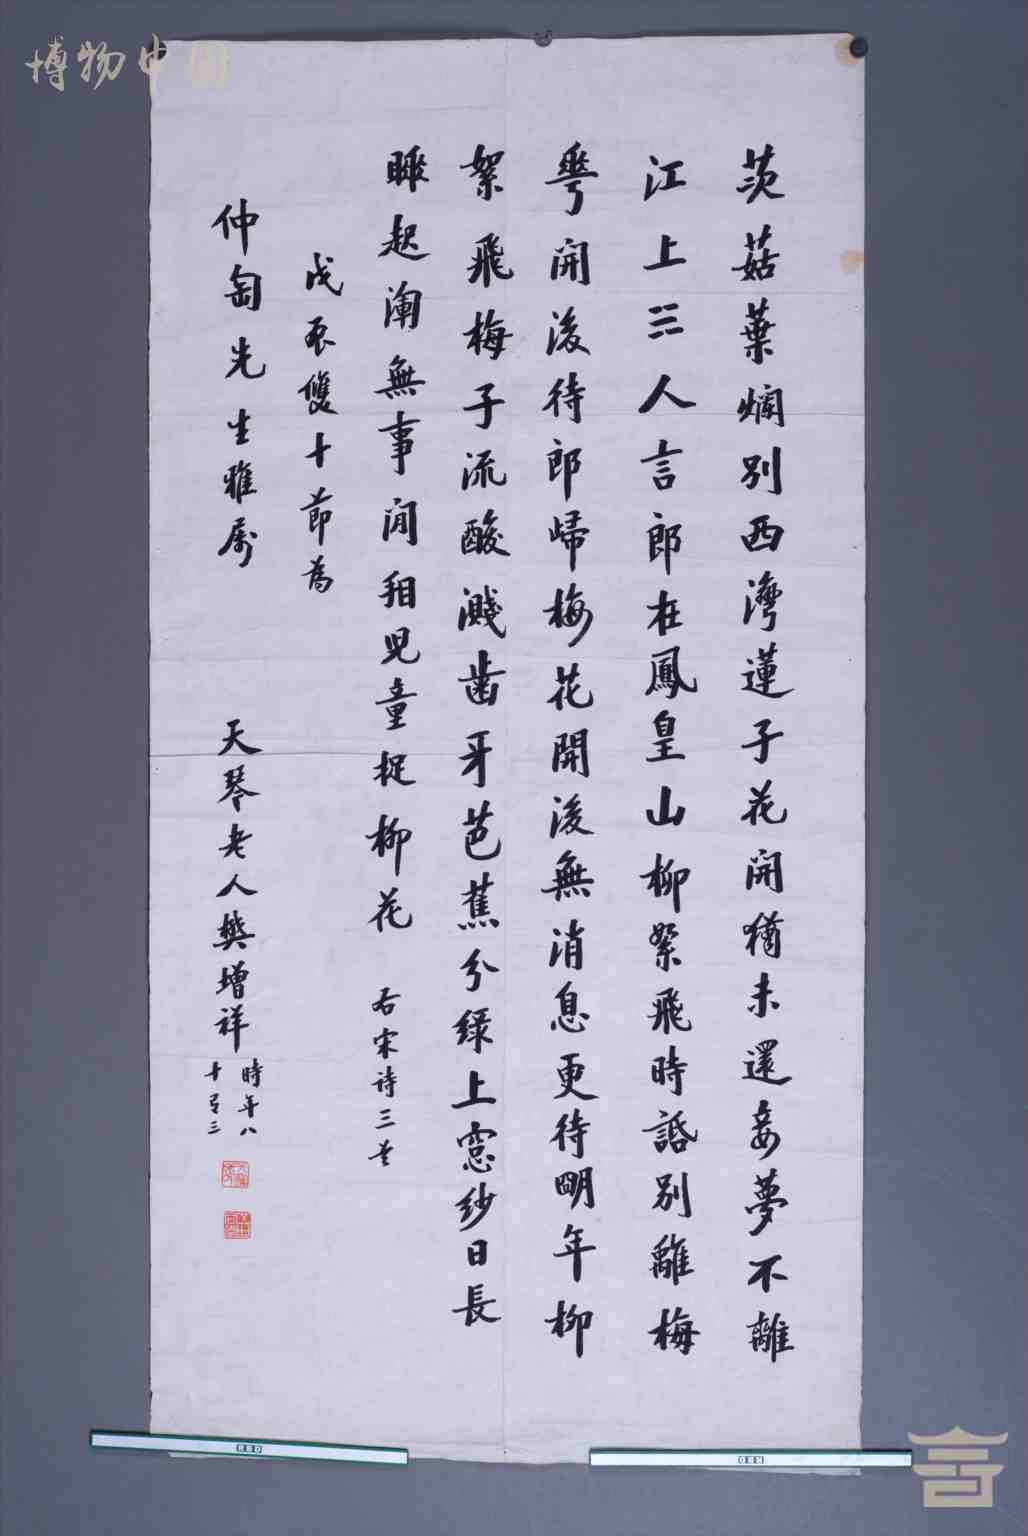 博物中国
茨菰葉爛別西灣蓮子花開猶未還妾夢不離
江上水人言郎在鳳皇山柳絮飛時話別離梅
華開後待郎歸梅花開後無消息更待明年柳
絮飛梅子流酸濺齒牙芭蕉分綠上窗紗日長
睡起渾無事閒看兒童捉柳花 右宋詩三首
戊辰雙十節為
仲匋先生雅属 天琴老人樊增祥
時年八
十有三